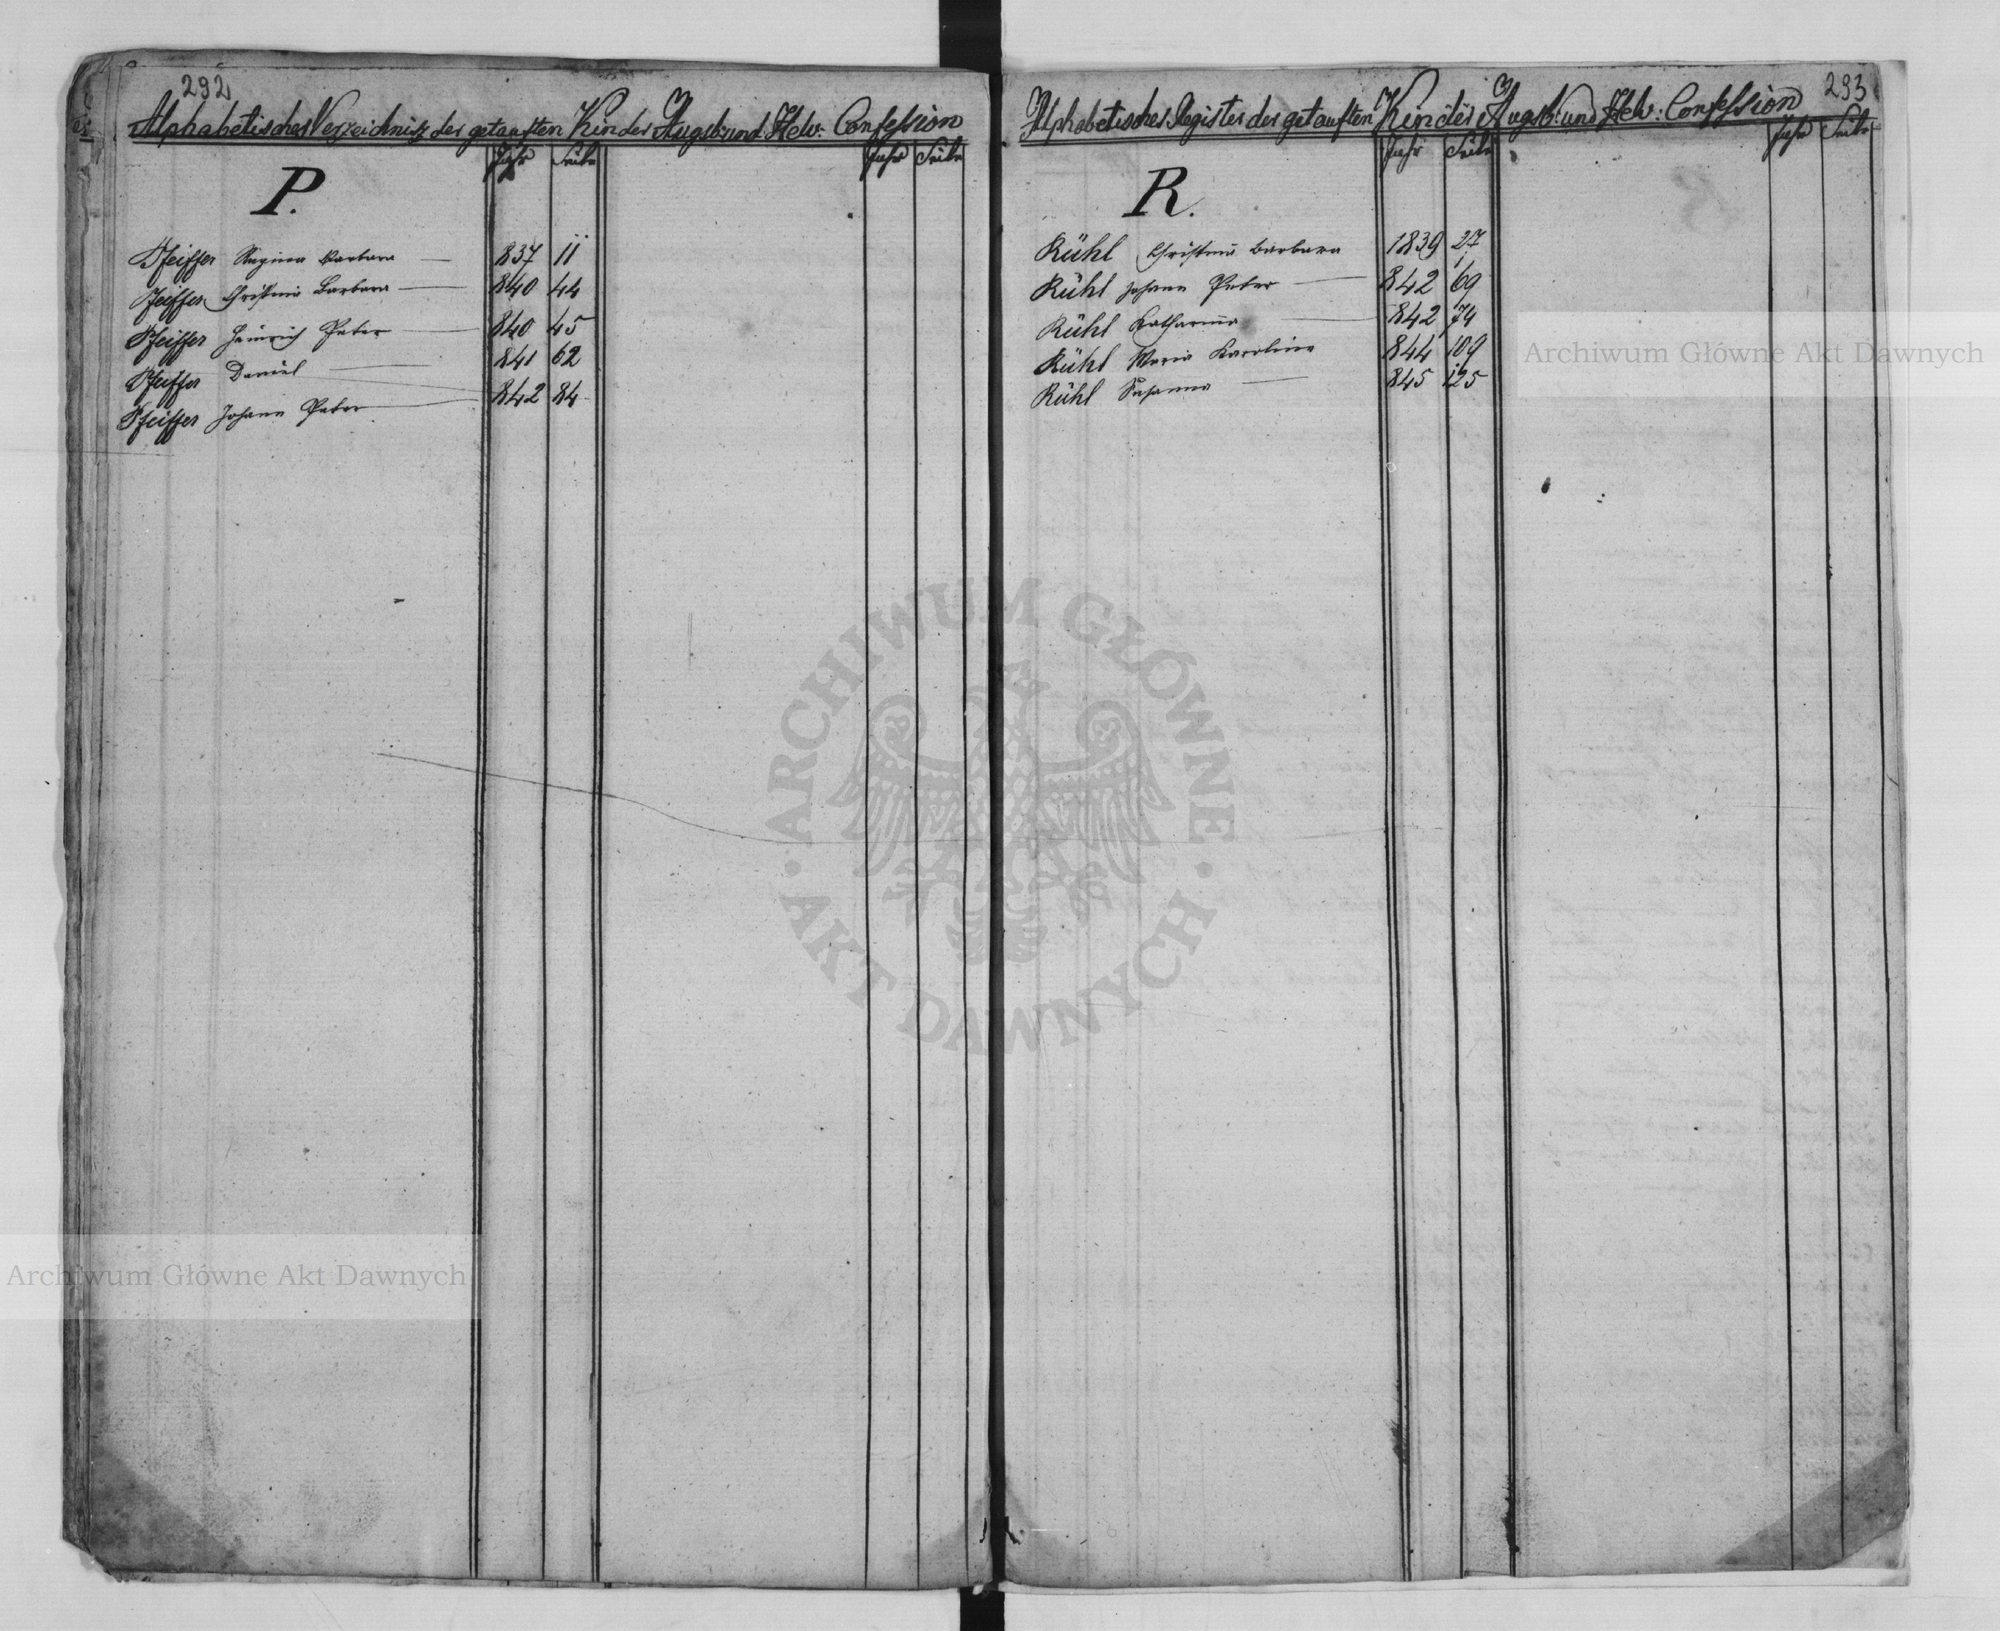 292
Alphabetisches Verzeichnisz der getauften Kinder Augsb: und Helv: Confession
Jahr Seite Jahr Seite
P.
Pfeiffer Regina Barbara — 837 11
Pfeiffer Christina Barbara — 840 44
Pfeiffer Heinrich Peter — 840 45
Pfeiffer Daniel — 841 62
Pfeiffer Johann Peter — 842 84
293
Alphabetisches Register der getauften Kinder Augsb: und Helv: Confession
Jahr Seite Jahr Seite
R.
Rühl Christina Barbara 1839 27
Rühl Johann Peter — 842 69
Rühl Katharina — 842 74
Rühl Maria Karolina 844 109
Rühl Susanna — 845 125
Archiwum Główne Akt Dawnych
ARCHIWUM GŁÓWNE · AKT DAWNYCH ·
Archiwum Główne Akt Dawnych